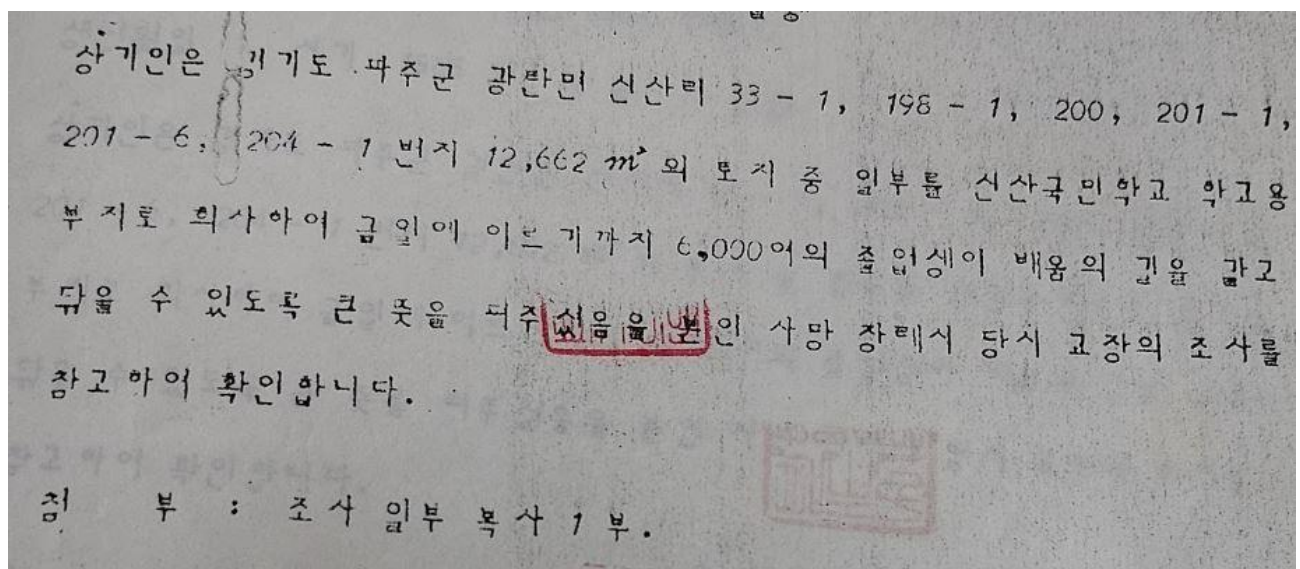 상기인은 경기도 파주군 광탄면 신산리 33 - 1, 198 - 1, 200, 201 - 1,
201 - 6, 204 - 1 번지 12,662 m² 의 토지 중 일부를 신산국민학교 학교용
부지로 희사하여 금일에 이르기까지 6,000여의 졸업생이 배움의 길을 갈고
닦을 수 있도록 큰 뜻을 펴주셨음을 본인 사망 장례시 당시 교장의 조사를
참고하여 확인합니다.
첨 부 : 조사 일부 복사 1 부.